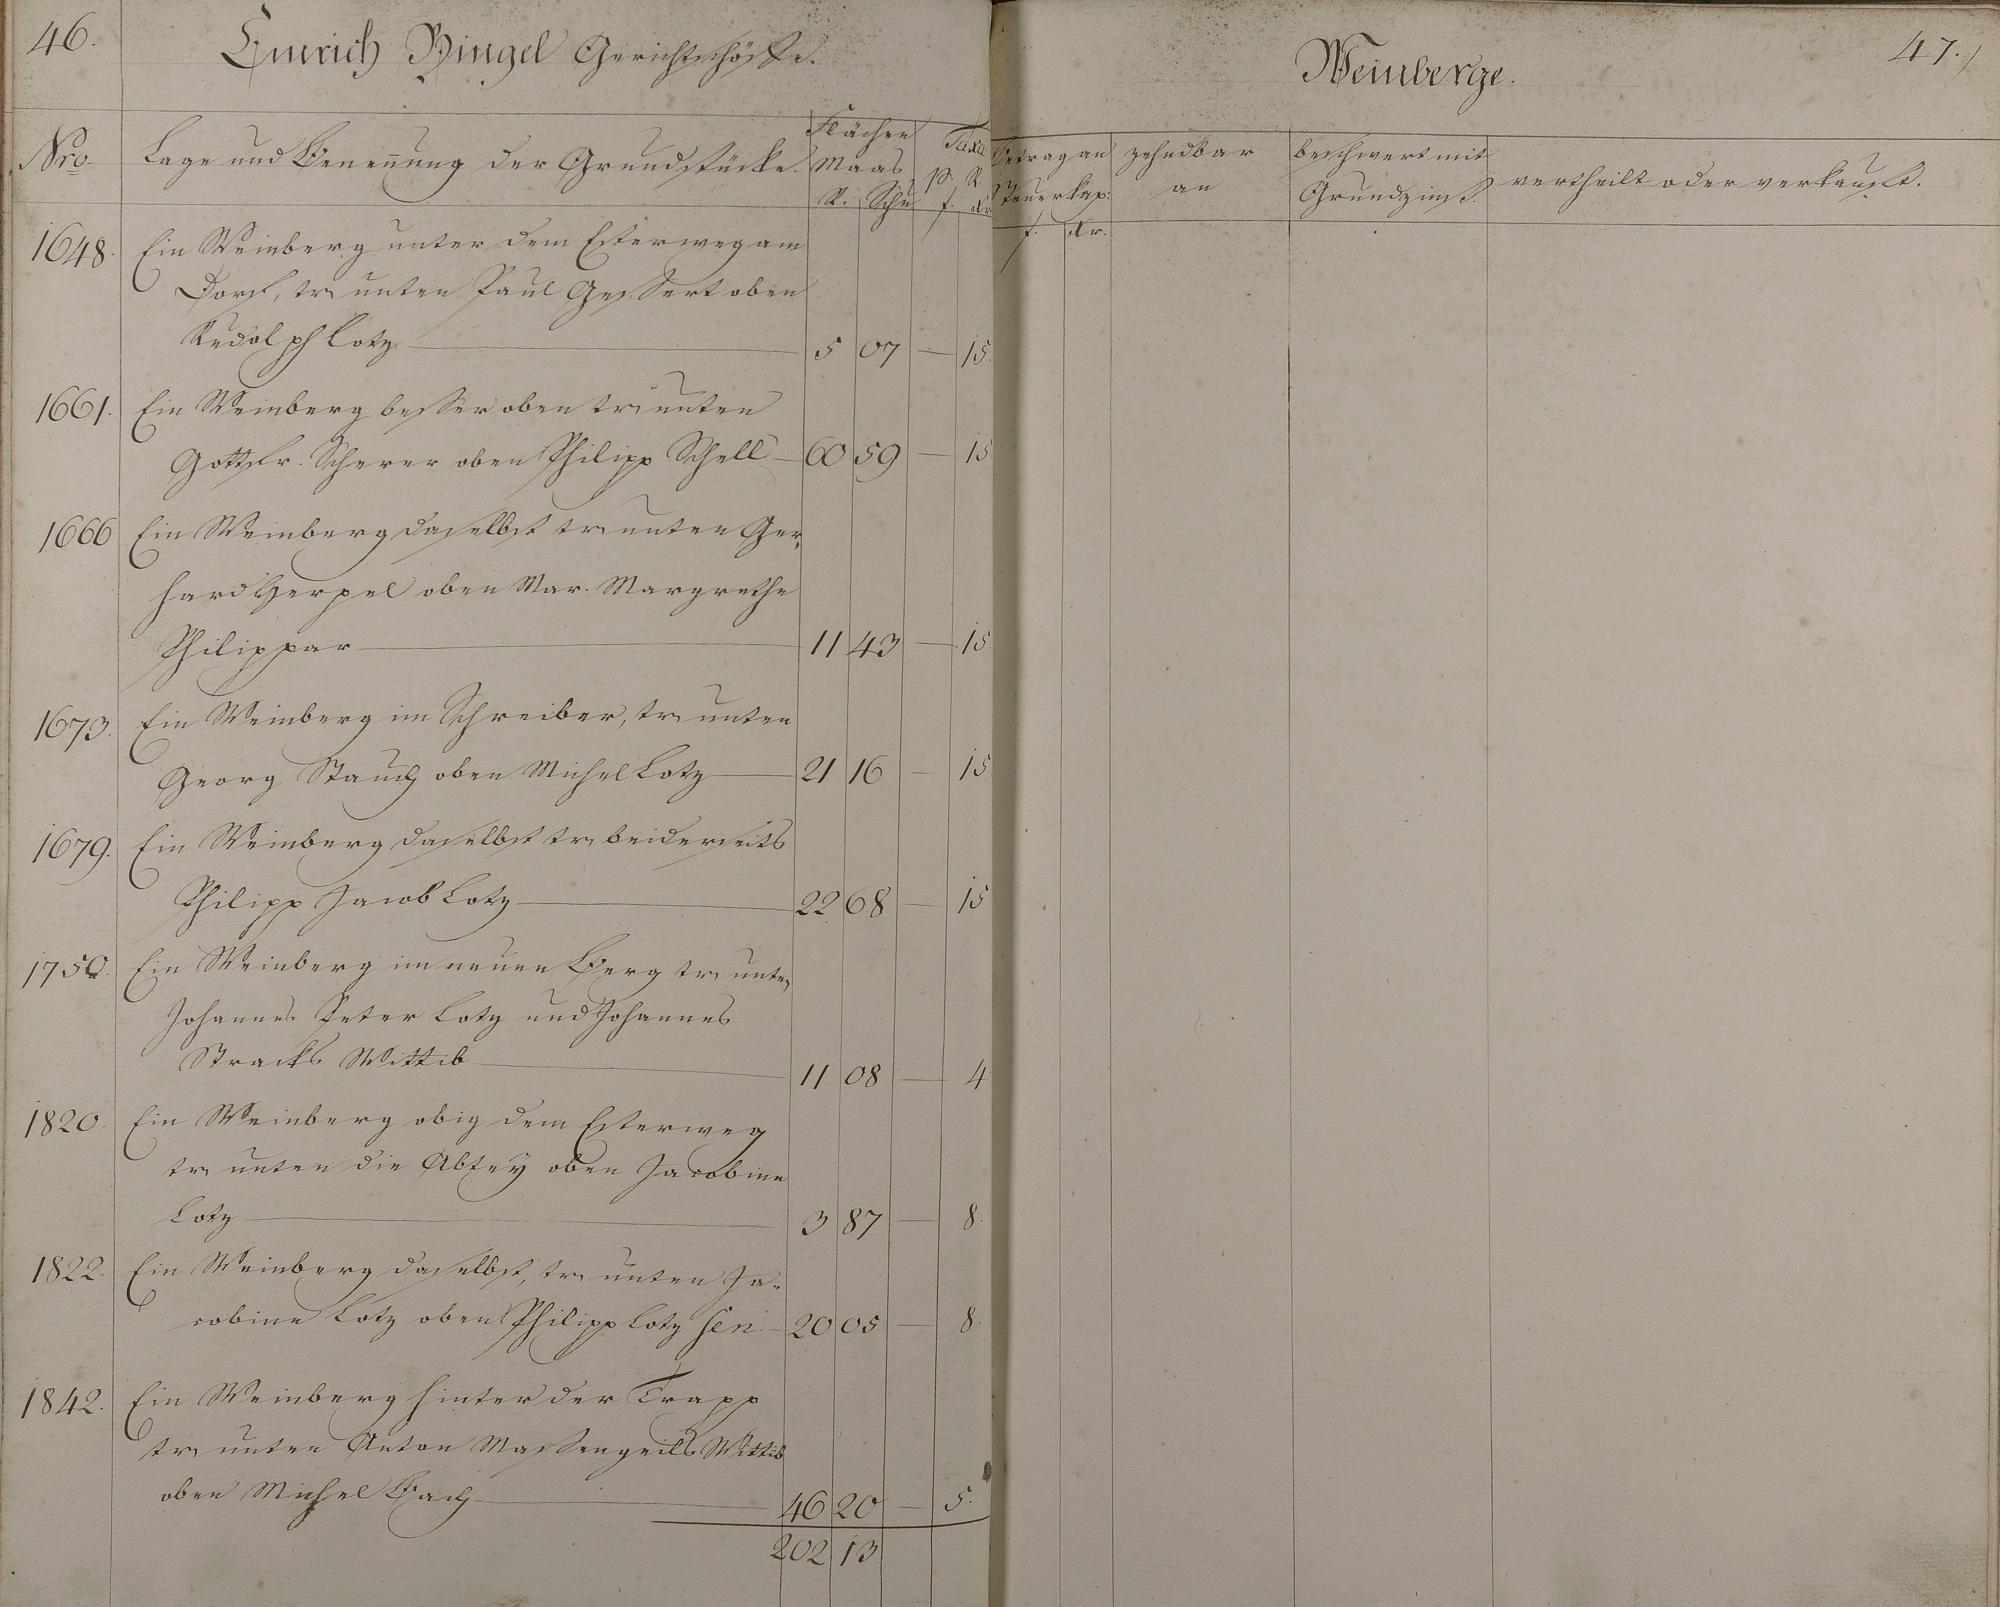 46.
Emrich Bingel Gerichtschöffe.
Nro. Lage und Benennung der Grundstücke. Flächen Maas R. Schu Taxa p. R. f. Kr
1648. Ein Weinberg unter dem Esterweg am
Dorf, tr. unten Paul Gessert oben
Rudolph Lotz 5 07 — 15.
1661. Ein Weinberg besser oben tr. unten
Gottfr. Scherer oben Philipp Schell — 60 59 — 15
1666 Ein Weinberg daselbst tr. unten Ger-
hard Herpel oben Mar. Margrethe
Philippar 11 43 — 15
1673. Ein Weinberg im Schreiber, tr. unten
Georg Stauch oben Michel Lotz 21 16 — 15
1679. Ein Weinberg daselbst tr. beiderseits
Philipp Jacob Lotz 22 68 — 15
1750. Ein Weinberg im neuen Berg tr. unten
Johannes Peter Lotz und Johannes
Stracks Wittib 11 08 — 4
1820. Ein Weinberg obig dem Esterweg
tr. unten die Abtey oben Jacobine
Lotz 3 87 — 8.
1822. Ein Weinberg daselbst, tr. unten Ja-
cobine Lotz oben Philipp Lotz sen — 20 05 — 8.
1842. Ein Weinberg hinter der Trapp
tr. unten Anton Massengeils Wittib
oben Michel Bach 46 20 — 5.
202 13
47.
Weinberge.
Betrag an Steuerkap: f. Kr. zehndbar an beschwert mit Grundzins. vertheilt oder verkauft.